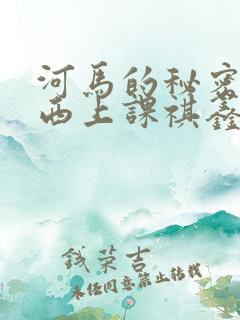 河馬的秘密
西上課祺鑫
錢荣吉
未经同意禁止转载